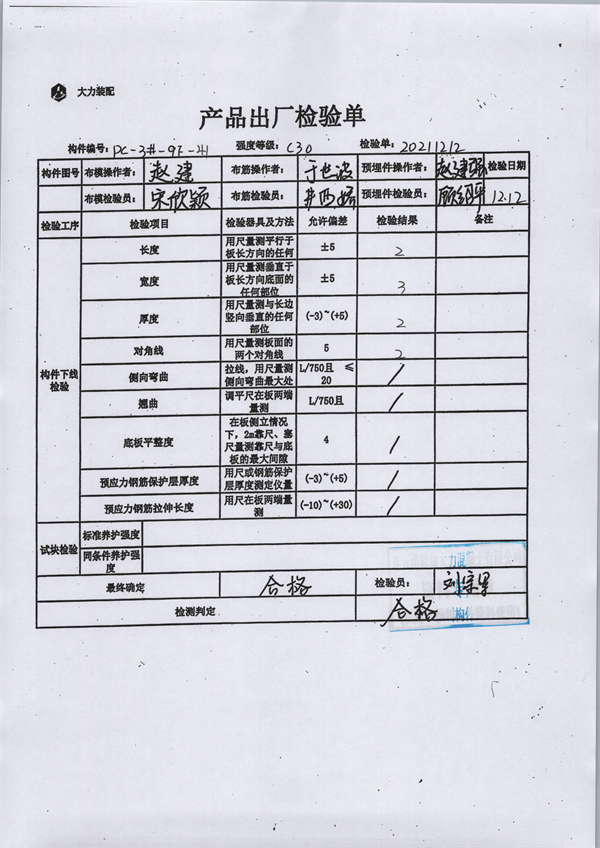 大力装配
产品出厂检验单
构件编号: PC-3#-9F-41 强度等级: C30 检验单: 20211212
构件图号 布模操作者: 赵建 布筋操作者: 于世波 预埋件操作者: 赵建强 检验日期
布模检验员: 宋欣颖 布筋检验员: 预埋件检验员: 12.12
检验工序 检验项目 检验器具及方法 允许偏差 检验结果 备注
构件下线检验
长度 用尺量测平行于板长方向的任何 ±5 2
宽度 用尺量测垂直于板长方向底面的任何部位 ±5 3
厚度 用尺量测与长边竖向垂直的任何部位 (-3)~(+5) 2
对角线 用尺量测板面的两个对角线 5 2
侧向弯曲 拉线，用尺量测侧向弯曲最大处 L/750且 ≤20 /
翘曲 调平尺在板两端量测 L/750且 /
底板平整度 在板侧立情况下，2m靠尺、塞尺量测靠尺与底板的最大间隙 4 /
预应力钢筋保护层厚度 用尺或钢筋保护层厚度测定仪量 (-3)~(+5) /
预应力钢筋拉伸长度 用尺在板两端量测 (-10)~(+30) /
试块检验 标准养护强度
同条件养护强度
最终确定 合格 检验员:
检测判定 合格